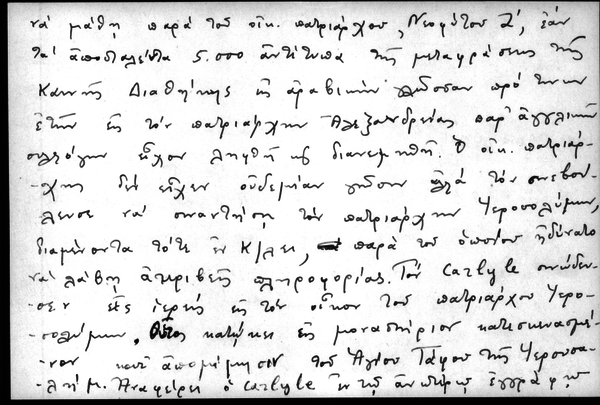 νά μάθῃ παρά τοῦ οἰκ. πατριάρχου, Νεοφύτου Ζ', ἐάν
τά ἀποσταλέντα 5.000 ἀντίτυπα τῆς μεταφράσεως τῆς
Καινῆς Διαθήκης εἰς ἀραβικήν γλῶσσαν πρό τινων
ἐτῶν εἰς τόν πατριάρχην Ἀλεξανδρείας παρ' ἀγγλικῶν
συλλόγων εἶχον ληφθῆ καί διανεμηθῆ. Ὁ οἰκ. πατριάρ-
-χης δέν εἶχεν οὐδεμίαν γνῶσιν ἀλλά τόν συνεβού-
λευσε νά συναντήσῃ τόν πατριάρχην Ἱεροσολύμων,
διαμένοντα τότε ἐν Κ/λει, παρά τοῦ ὁποίου ἠδύνατο
νά λάβῃ ἀκριβεῖς πληροφορίας. Τόν Carlyle συνώδευ-
-σεν εἷς ἱερεύς εἰς τόν οἶκον τοῦ πατριάρχου Ἱερο-
-σολύμων. Οὗτος κατῴκει εἰς μοναστήριον κατεσκευασμέ-
-νον κατ' ἀπομίμησιν τοῦ Ἁγίου Τάφου τῆς Ἱερουσα-
-λήμ. Ἀναφέρει ὁ Carlyle ἐν τῷ ἀνωτέρω ἐγγράφῳ